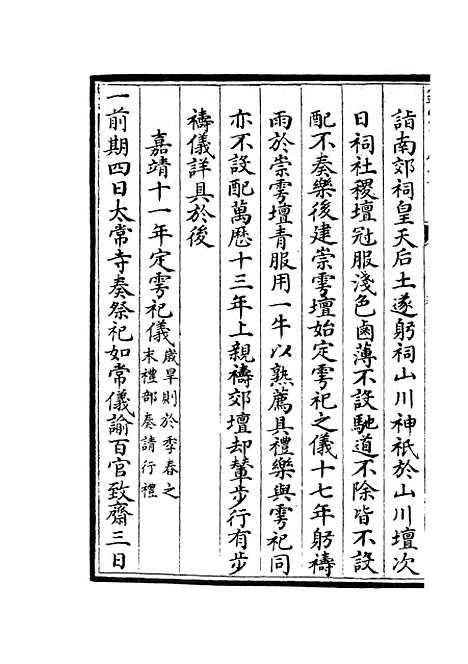 詣南郊祠皇天后土遂躬祠山川神祇於山川壇次
日祠社稷壇冠服淺色鹵薄不設馳道不除皆不設
配不奏樂後建崇雩壇始定雩祀之儀十七年躬禱
雨於崇雩壇青服用一牛以熟薦具禮樂與雩祀同
亦不設配萬歷十三年上親禱郊壇却輦步行有步
禱儀詳具於後
嘉靖十一年定雩祀儀歲旱則於季春之
末禮部奏請行禮
一前期四日太常寺奏祭祀如常儀諭百官致齋三日